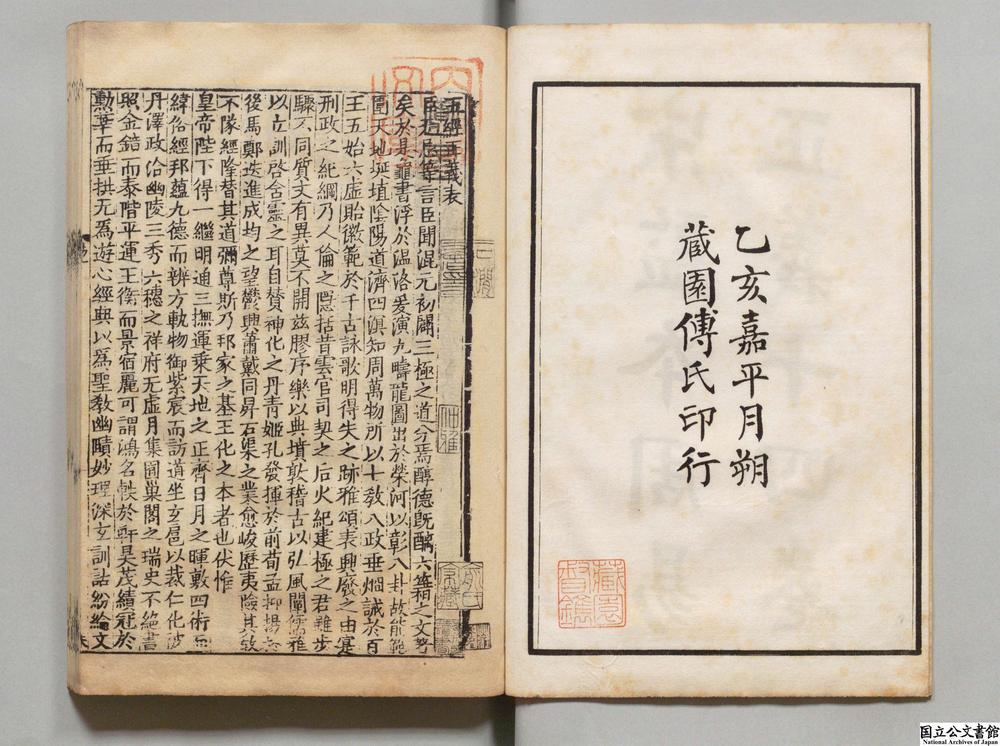 乙亥嘉平月朔
藏園傅氏印行
藏園
督鐫
五經正義表
臣无忌等言臣聞混元初闢三極之道分焉醇德旣醨六籍之文著
矣於是龜書浮於溫洛爰演九疇龍圖出於榮河以彰八卦故能範
圍天地埏埴陰陽道濟四溟知周萬物所以七敎八政垂烱誡於百
王五始六虛貽徽範於千古詠歌明得失之跡雅頌表興廢之由寔
刑政之紀綱乃人倫之隱括昔雲官司契之后火紀建極之君雖步
驟不同質文有異莫不開茲膠序樂以典墳敦稽古以弘風闡儒雅
以立訓啓含靈之耳目贊神化之丹青姬孔發揮於前荀孟抑揚於
後馬鄭迭進成均之望鬱興蕭戴同昇石渠之業愈峻歷夷險其敎
不隊經隆替其道彌尊斯乃邦家之基王化之本者也伏惟
皇帝陛下得一繼明通三撫運乘天地之正齊日月之暉敷四術而
緯俗經邦蘊九德而辨方軌物御紫宸而訪道坐玄扈以裁仁化
丹澤政洽幽陵三秀六穗之祥府无虛月集囿巢閣之瑞史不絕書
照金鏡而泰階平運玉衡而景宿麗可謂鴻名軼於軒昊茂績冠於
勲華而垂拱无爲遊心經典以爲聖敎幽賾妙理深玄訓詁紛綸文
国立公文書館
National Archives of Japan